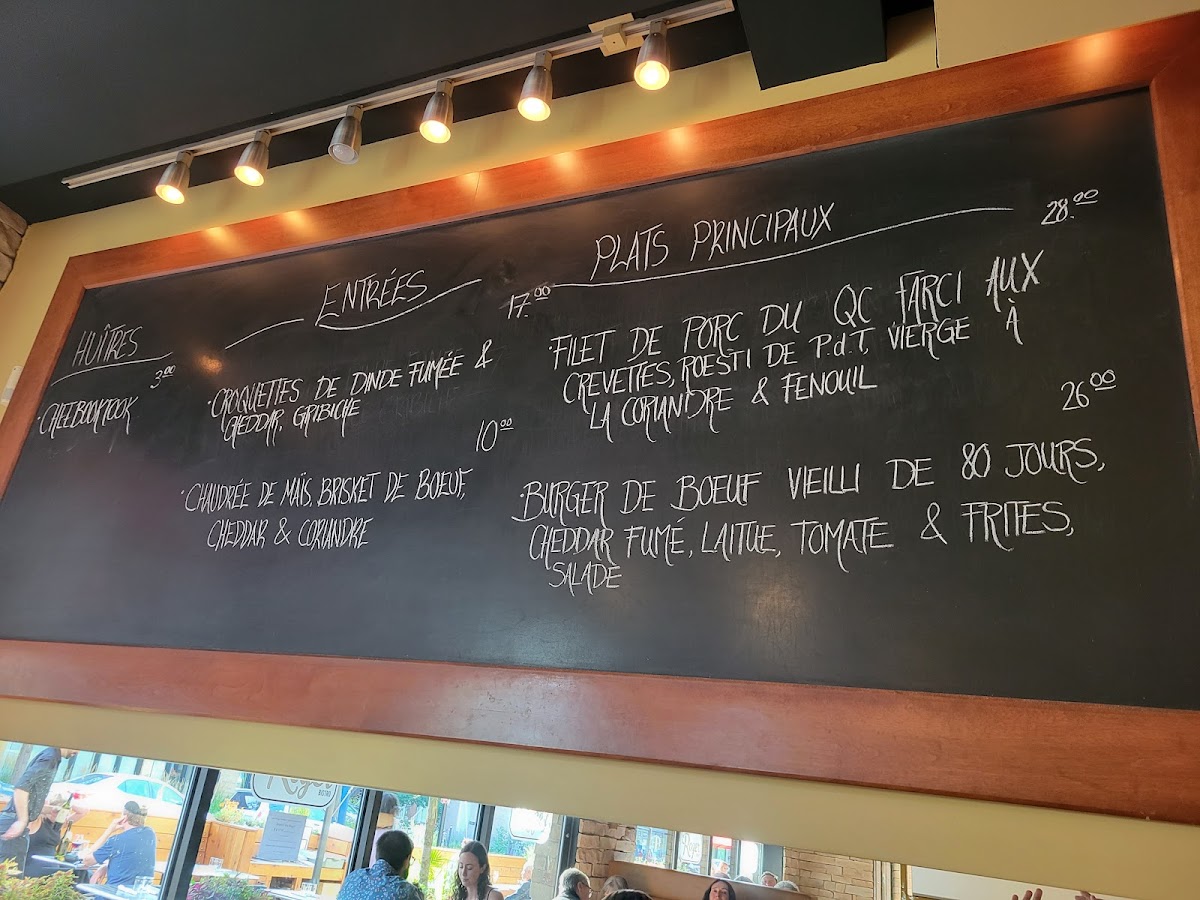 HUÎTRES
3.00
· CHEEBOOKTOOK
ENTRÉES
17.00
· CROQUETTES DE DINDE FUMÉE &
CHEDDAR, GRIBICHE
10.00
· CHAUDRÉE DE MAÏS, BRISKET DE BOEUF,
CHEDDAR & CORIANDRE
PLATS PRINCIPAUX
28.00
· FILET DE PORC DU QC FARCI AUX
CREVETTES, ROESTI DE P.d.T, VIERGE À
LA CORIANDRE & FENOUIL
26.00
· BURGER DE BOEUF VIEILLI DE 80 JOURS,
CHEDDAR FUMÉ, LAITUE, TOMATE & FRITES,
SALADE
BISTRO